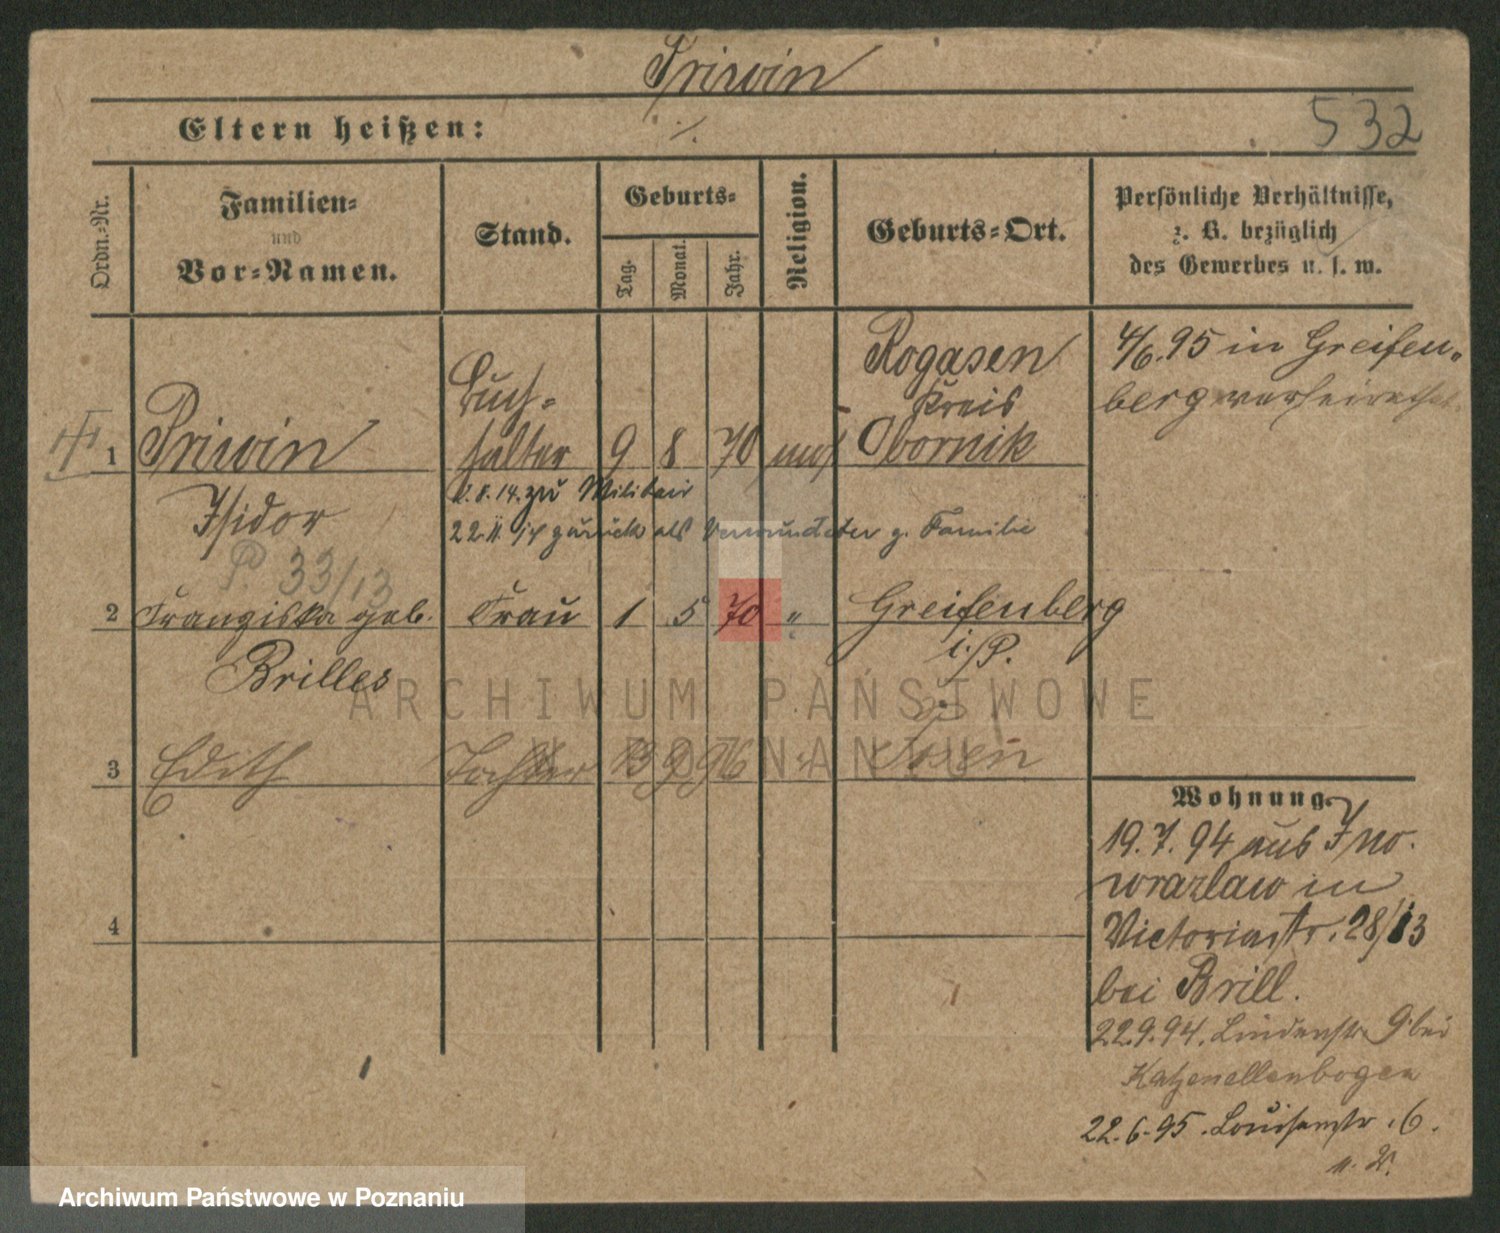 Priwin
Eltern heißen: ./.
532
Ordn.-Nr.
Familien-
und
Vor-Namen.
Stand.
Geburts-
Tag.
Monat.
Jahr.
Religion.
Geburts-Ort.
Persönliche Verhältnisse,
z. B. bezüglich
des Gewerbes u. s. w.
1
Priwin
Isidor
Buch-
halter
9 8 70 mos
Rogasen
Kreis
Obornik
4/6.95 in Greifen-
berg verheirathet.
8.14. zu Militair
22.11. zurück als Verwundeter z. Familie
P. 33/13
2
Franziska geb.
Brilles
Frau
1 5 70 "
Greifenberg
i./P.
3
Edith
Tochter
13 9 96 "
Posen
4
Wohnung.
19.7.94 aus Ino-
wrazlaw in
Victoriastr. 28/13
bei Brill.
22.9.94. Lindenstr 9 bei
Katzenellenbogen
22.6.95. Louisenstr. 6.
n. W.
ARCHIWUM PAŃSTWOWE
W POZNANIU
Archiwum Państwowe w Poznaniu